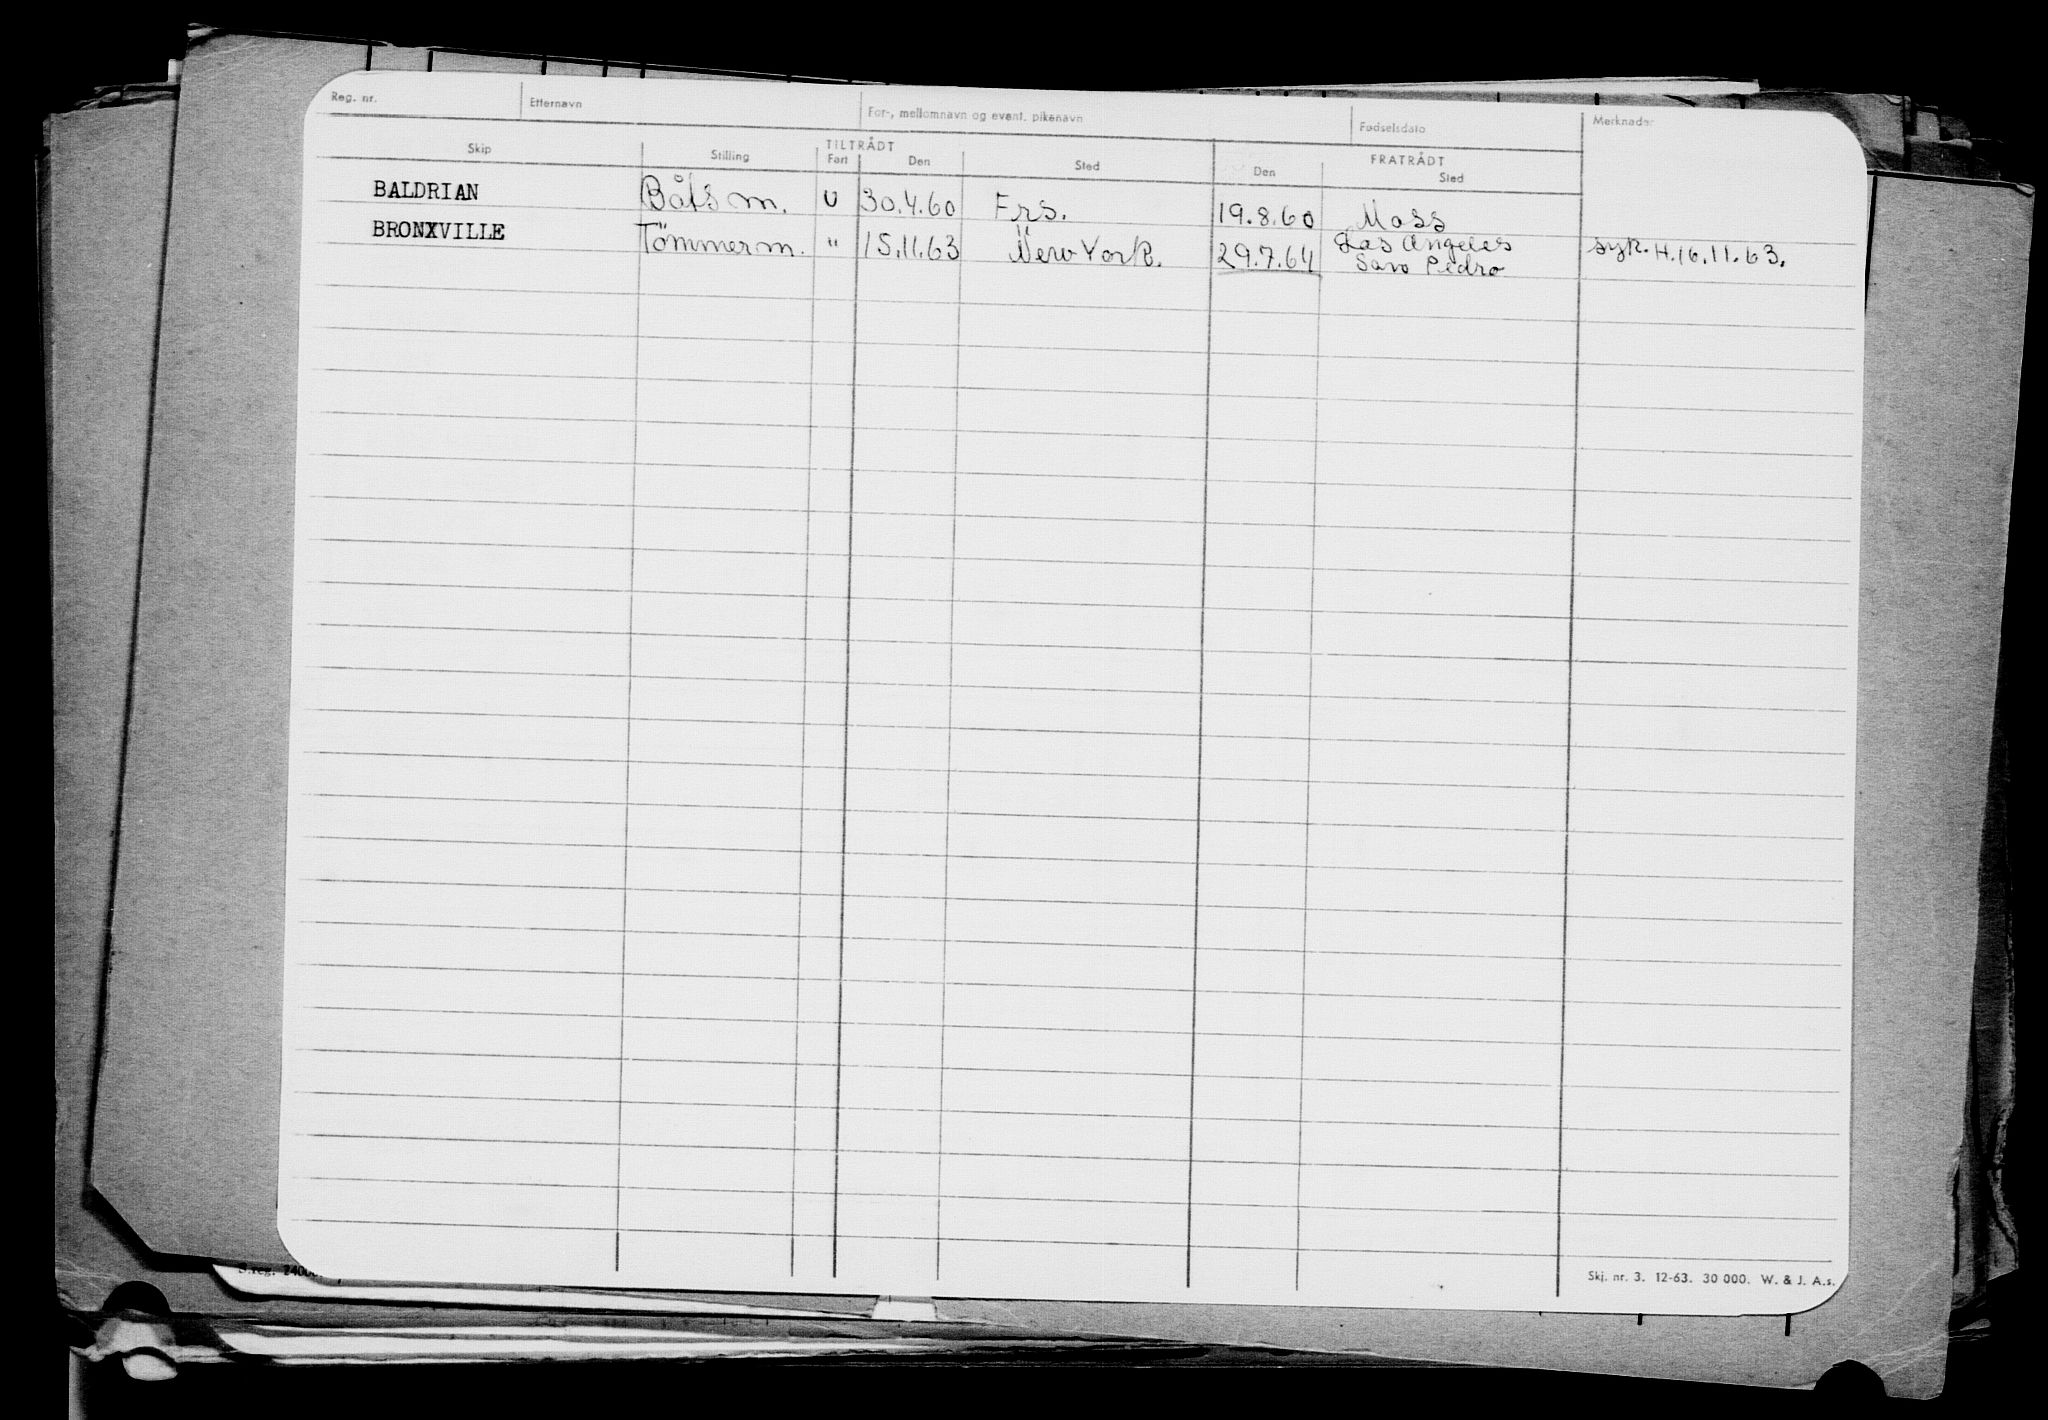 Reg. nr. Etternavn For-, mellomnavn og event. pikenavn Fødselsdato Merknader
TILTRÅDT FRATRÅDT
Skip Stilling Fart Den Sted Den Sted
BALDRIAN Båtsm. U 30.4.60 Frs. 19.8.60 Moss
BRONXVILLE Tömmerm. " 15.11.63 New York. 29.7.64 Los Angeles
San Pedro syk. H.16.11.63.
Skj. nr. 3. 12-63. 30 000. W. & J. A.s.
S.reg.